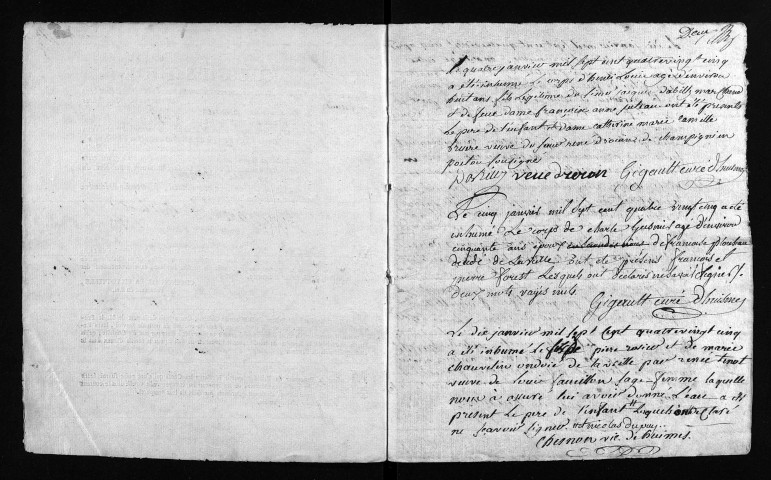 Deux
Le quatre janvier mil sept cent quatre vingt cinq
a été inhumé le corps d'henri Louis agé d'environ
huit ans fils légitime du sieur jacque Dabilly marchand
et de feue dame françoise anne juteau ont été présents
le pere de l'enfant et dame catherine marie camille
veuve du sieur rené drouin de champignier en
poitou soussigné
Dabilly veuve drouin Gigault curé d'huismes
Le cinq janvier mil sept cent quatre vingt cinq a été
inhumé le corps de charle agé d'environ
cinquante ans epoux de françoise
décédé de la veille ont été présens françois et
pierre forest Lesquels ont déclarés ne savoir signer
deux mots rayés nuls
Gigault curé d'huismes
Le dix janvier mil sept cent quatre vingt cinq
a été inhumé le pierre et de marie
chauvelin ondoié de la veille par renée tinot
veuve de louis sage-femme laquelle
nous à assuré lui avoir donné l'eau a été
present le pere de l'enfant lequel a déclaré
ne sçavoir signer et nicolas dupuy
Chesnon vic. de huismes